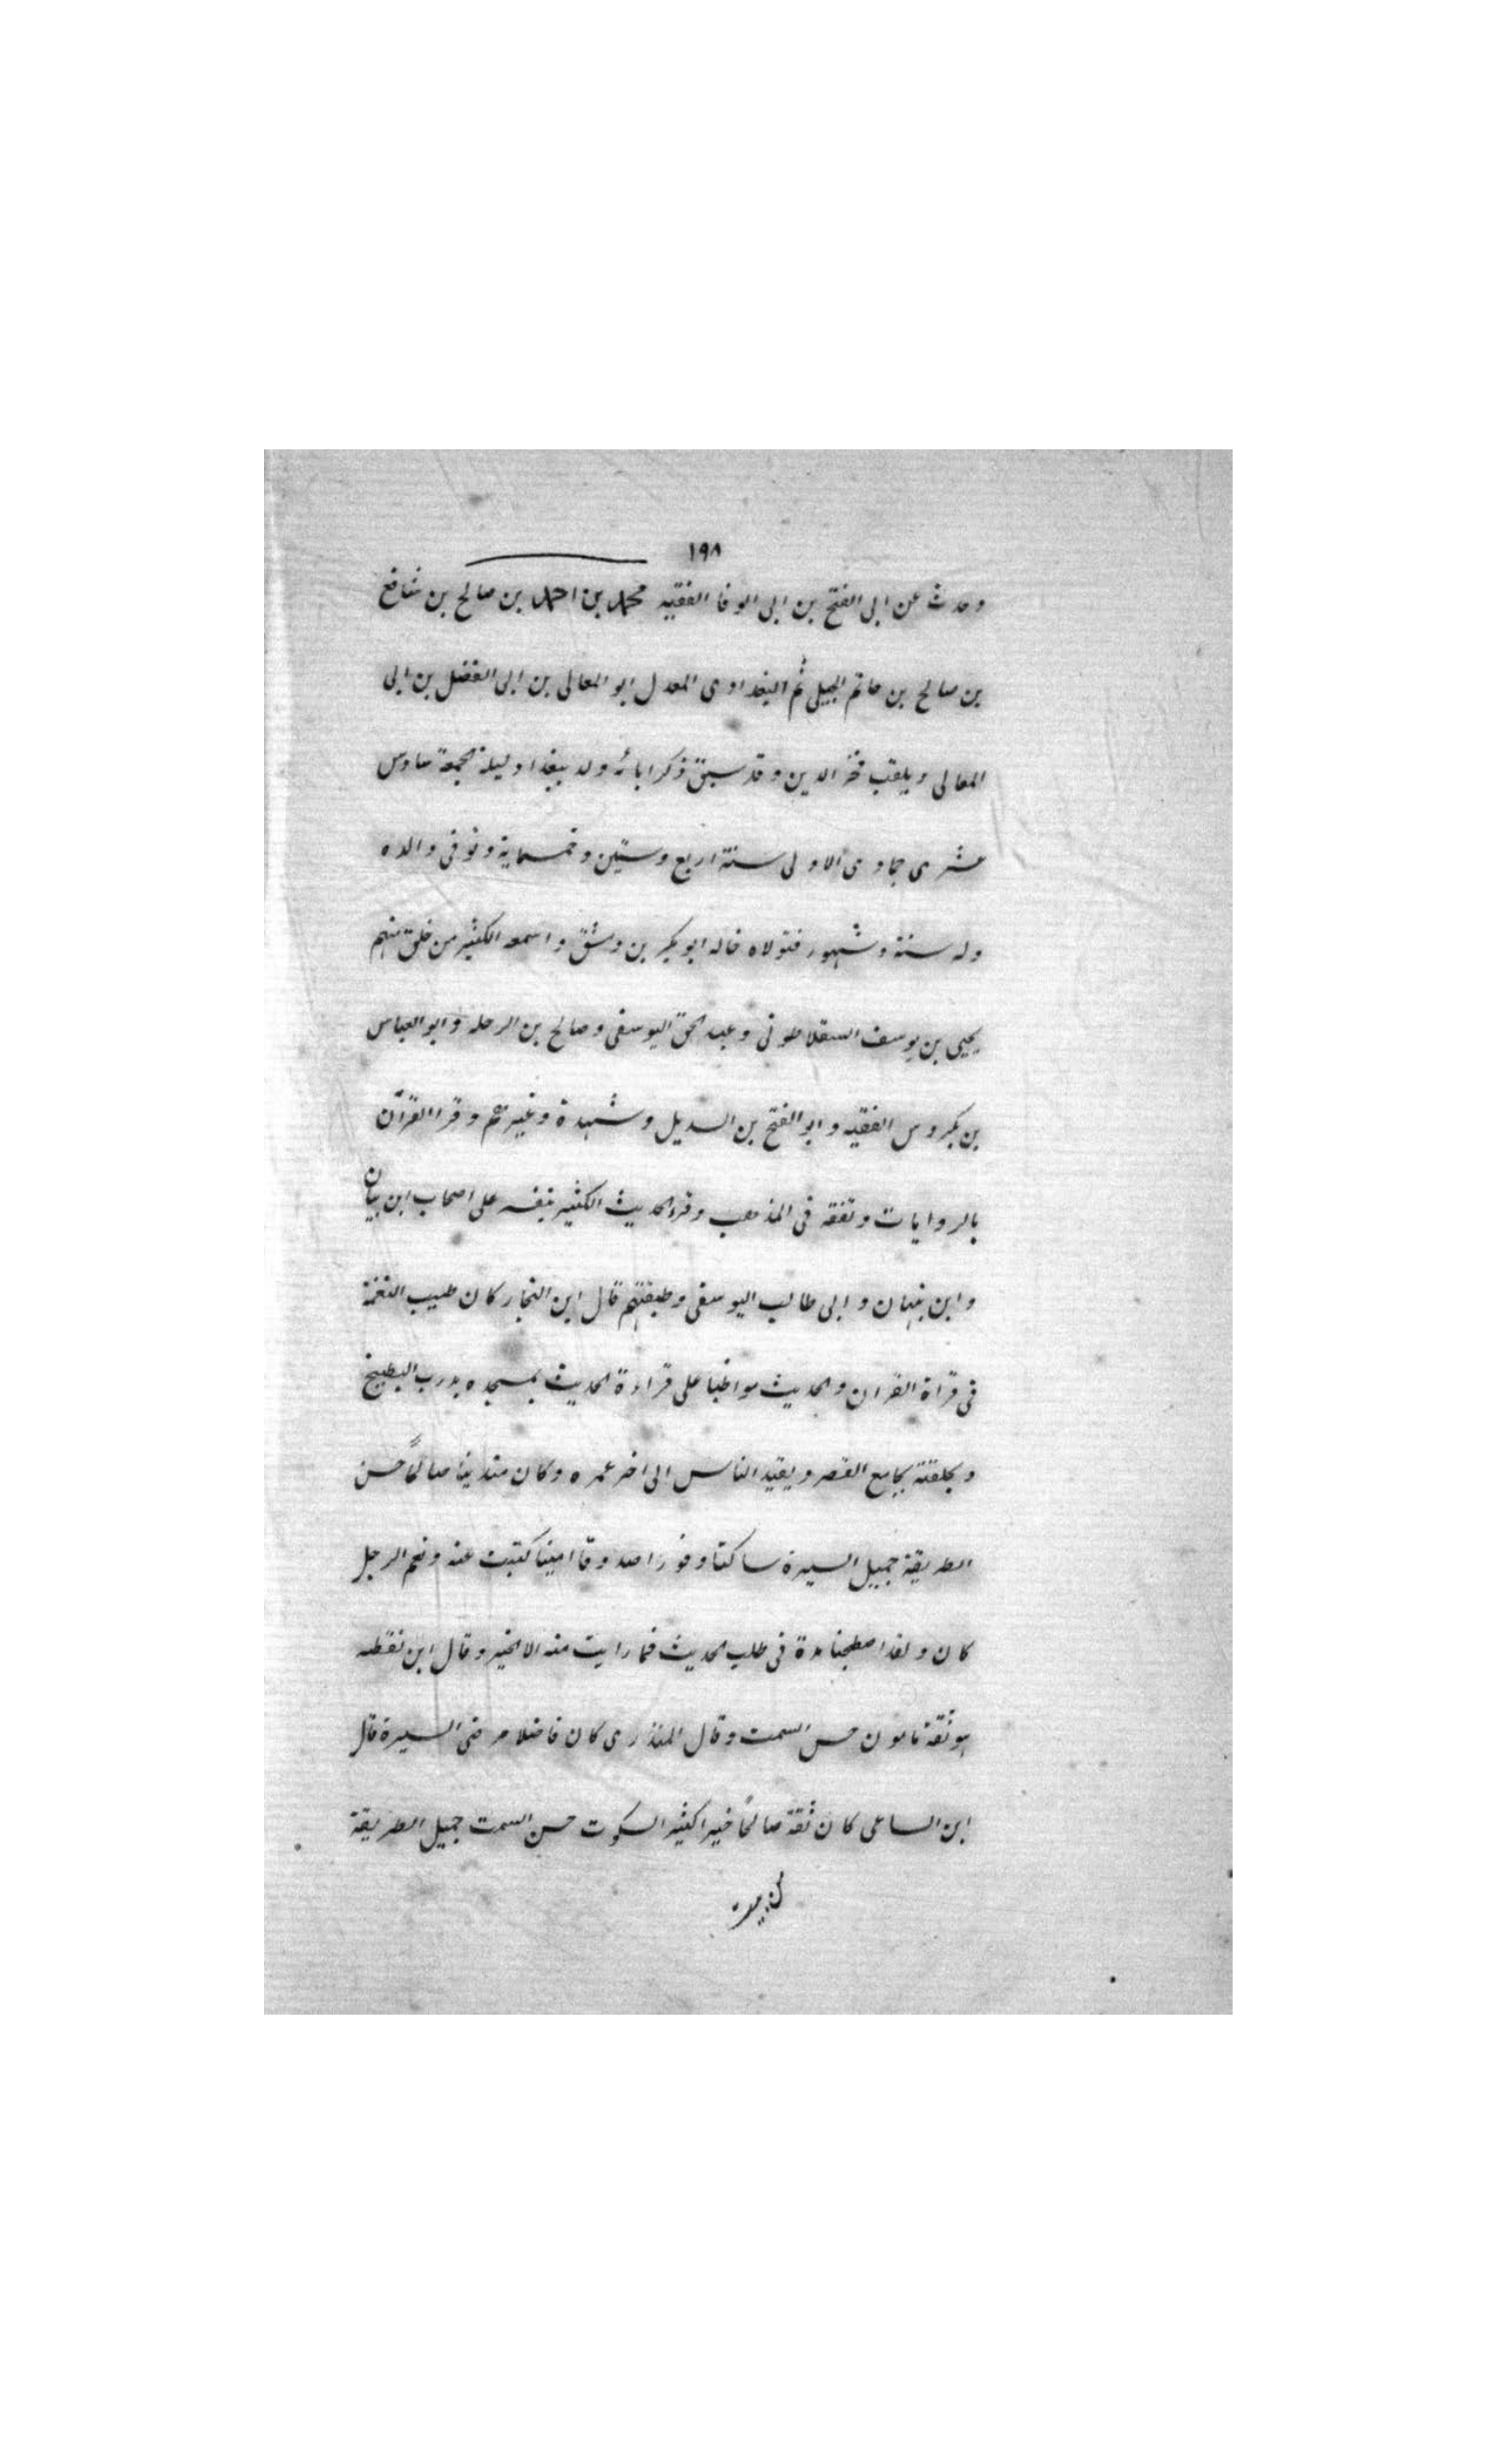 ١٩٨
وحدث عن ابى الفتح بن ابى الوفا الفقيه محمد بن احمد بن صالح بن شافع
بن صالح بن حاتم الجيلى ثم البغدادى المعدل ابو المعالى بن ابى الفضل بن ابى
المعالى ويلقب فخر الدين وقد سبق ذكر ابائه ولد ببغداد ليلة الجمعة سادس
عشرى جمادى الاولى سنة اربع وستين وخمسماية وتوفى والده
وله سنة وشهور فتولاه خاله ابو بكر بن مشق واسمعه الكثير من خلق منهم
يحيى بن يوسف السقلاطونى وعبد الحق اليوسفى وصالح بن الرحله وابو العباس
بن بكروس الفقيه وابو الفتح بن السديل وشهدة وغيرهم وقرا القرآن
بالروايات وتفقه فى المذهب وقرء الحديث الكثير بنفسه على اصحاب ابن بيان
وابن نبهان وابى طالب اليوسفى وطبقتهم قال ابن النجار كان طيب النغمة
فى قراة القران والحديث مواظبا على قراءة الحديث بمسجده بدرب البطيخ
وبحلقته بجامع القصر ويفيد الناس الى اخر عمره وكان متدينا صالحًا حسن
الطريقة جميل السيرة ساكتا وقورا صدوقا امينا كتبت عنه ونعم الرجل
كان ولقد اصطحبنا مدة فى طلب الحديث فما رايت منه الا الخير وقال ابن نقطه
هو ثقة مامون حسن السمت وقال المنذرى كان فاضلا مرضى السيرة قال
ابن الساعى كان ثقة صالحًا خيرا كثير السكوت حسن السمت جميل الطريقة